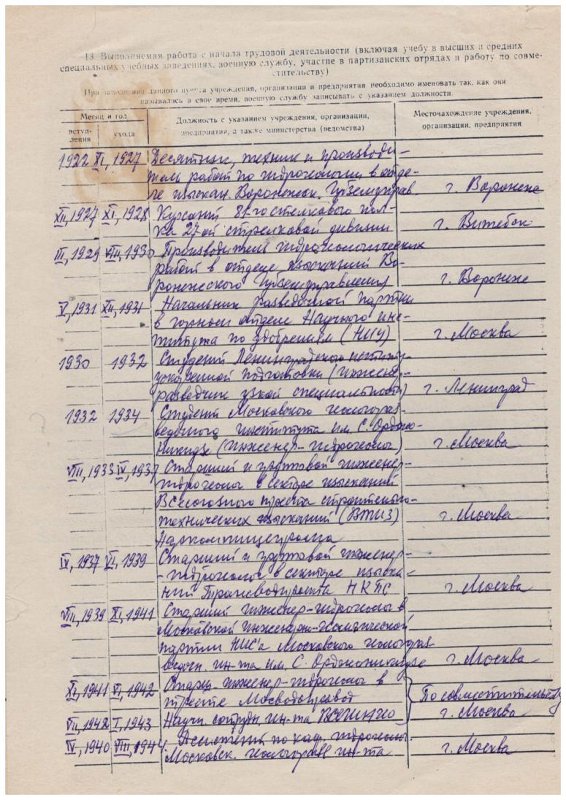 13. Выполняемая работа с начала трудовой деятельности (включая учебу в высших и средних
специальных учебных заведениях, военную службу, участие в партизанских отрядах и работу по совме-
стительству)
При заполнении данного пункта учреждения, организации и предприятия необходимо именовать так, как они
назывались в свое время, военную службу записывать с указанием должности.
Месяц и год
вступ-
ления
ухода
Должность с указанием учреждения, организации,
предприятия, а также министерства (ведомства)
Местонахождение учреждения,
организации, предприятия
1922 XI, 1927 Десятник, техник и производи-
тель работ по гидрогеологии в отде-
ле изыскан. Воронежск. Губземуправ г. Воронеж
XII, 1927 XI, 1928 Курсант 81-го стрелкового пол-
ка 27-ой стрелковой дивизии г. Витебск
III, 1929 VIII, 1930 Производитель гидрогеологических
работ в отделе изысканий Во-
ронежского Губземуправления г. Воронеж
V, 1931 XII, 1931 Начальник разведочной партии
в горном отделе Научного инс-
титута по удобрениям (НИУ) г. Москва
1930 1932 Студент Ленинградского института
ускоренной подготовки (инженер-
разведчик узкой специальности) г. Ленинград
1932 1934 Студент Московского геологораз-
ведочного института им С. Орджо-
никидзе (инженер-гидрогеолог) г. Москва
VIII, 1933 IV, 1937 Старший и групповой инженер-
гидрогеолог в секторе изысканий
Всесоюзного треста строительно-
технических изысканий (ВТИЗ)
Наркомтяжпрома г. Москва
IV, 1937 VI, 1939 Старший и групповой инженер-
-гидрогеолог в секторе изыска-
ний НКПС г. Москва
VII, 1939 XI, 1941 Старший инженер-гидрогеолог в
Московской инженерно-геологической
партии НИС'а Московского геологораз
ведочн. ин-та им. С. Орджоникидзе г. Москва
XI, 1941 VI, 1942 Старш. инженер-гидрогеолог в
тресте
VII, 1942 I, 1943 Научн сотрудн. ин-та ВСЕГИНГЕО
По совместительству
г. Москва
IV, 1940 VIII, 1944 Ассистент по каф. гидрогеолог
Московск. геологоразв ин-та г. Москва